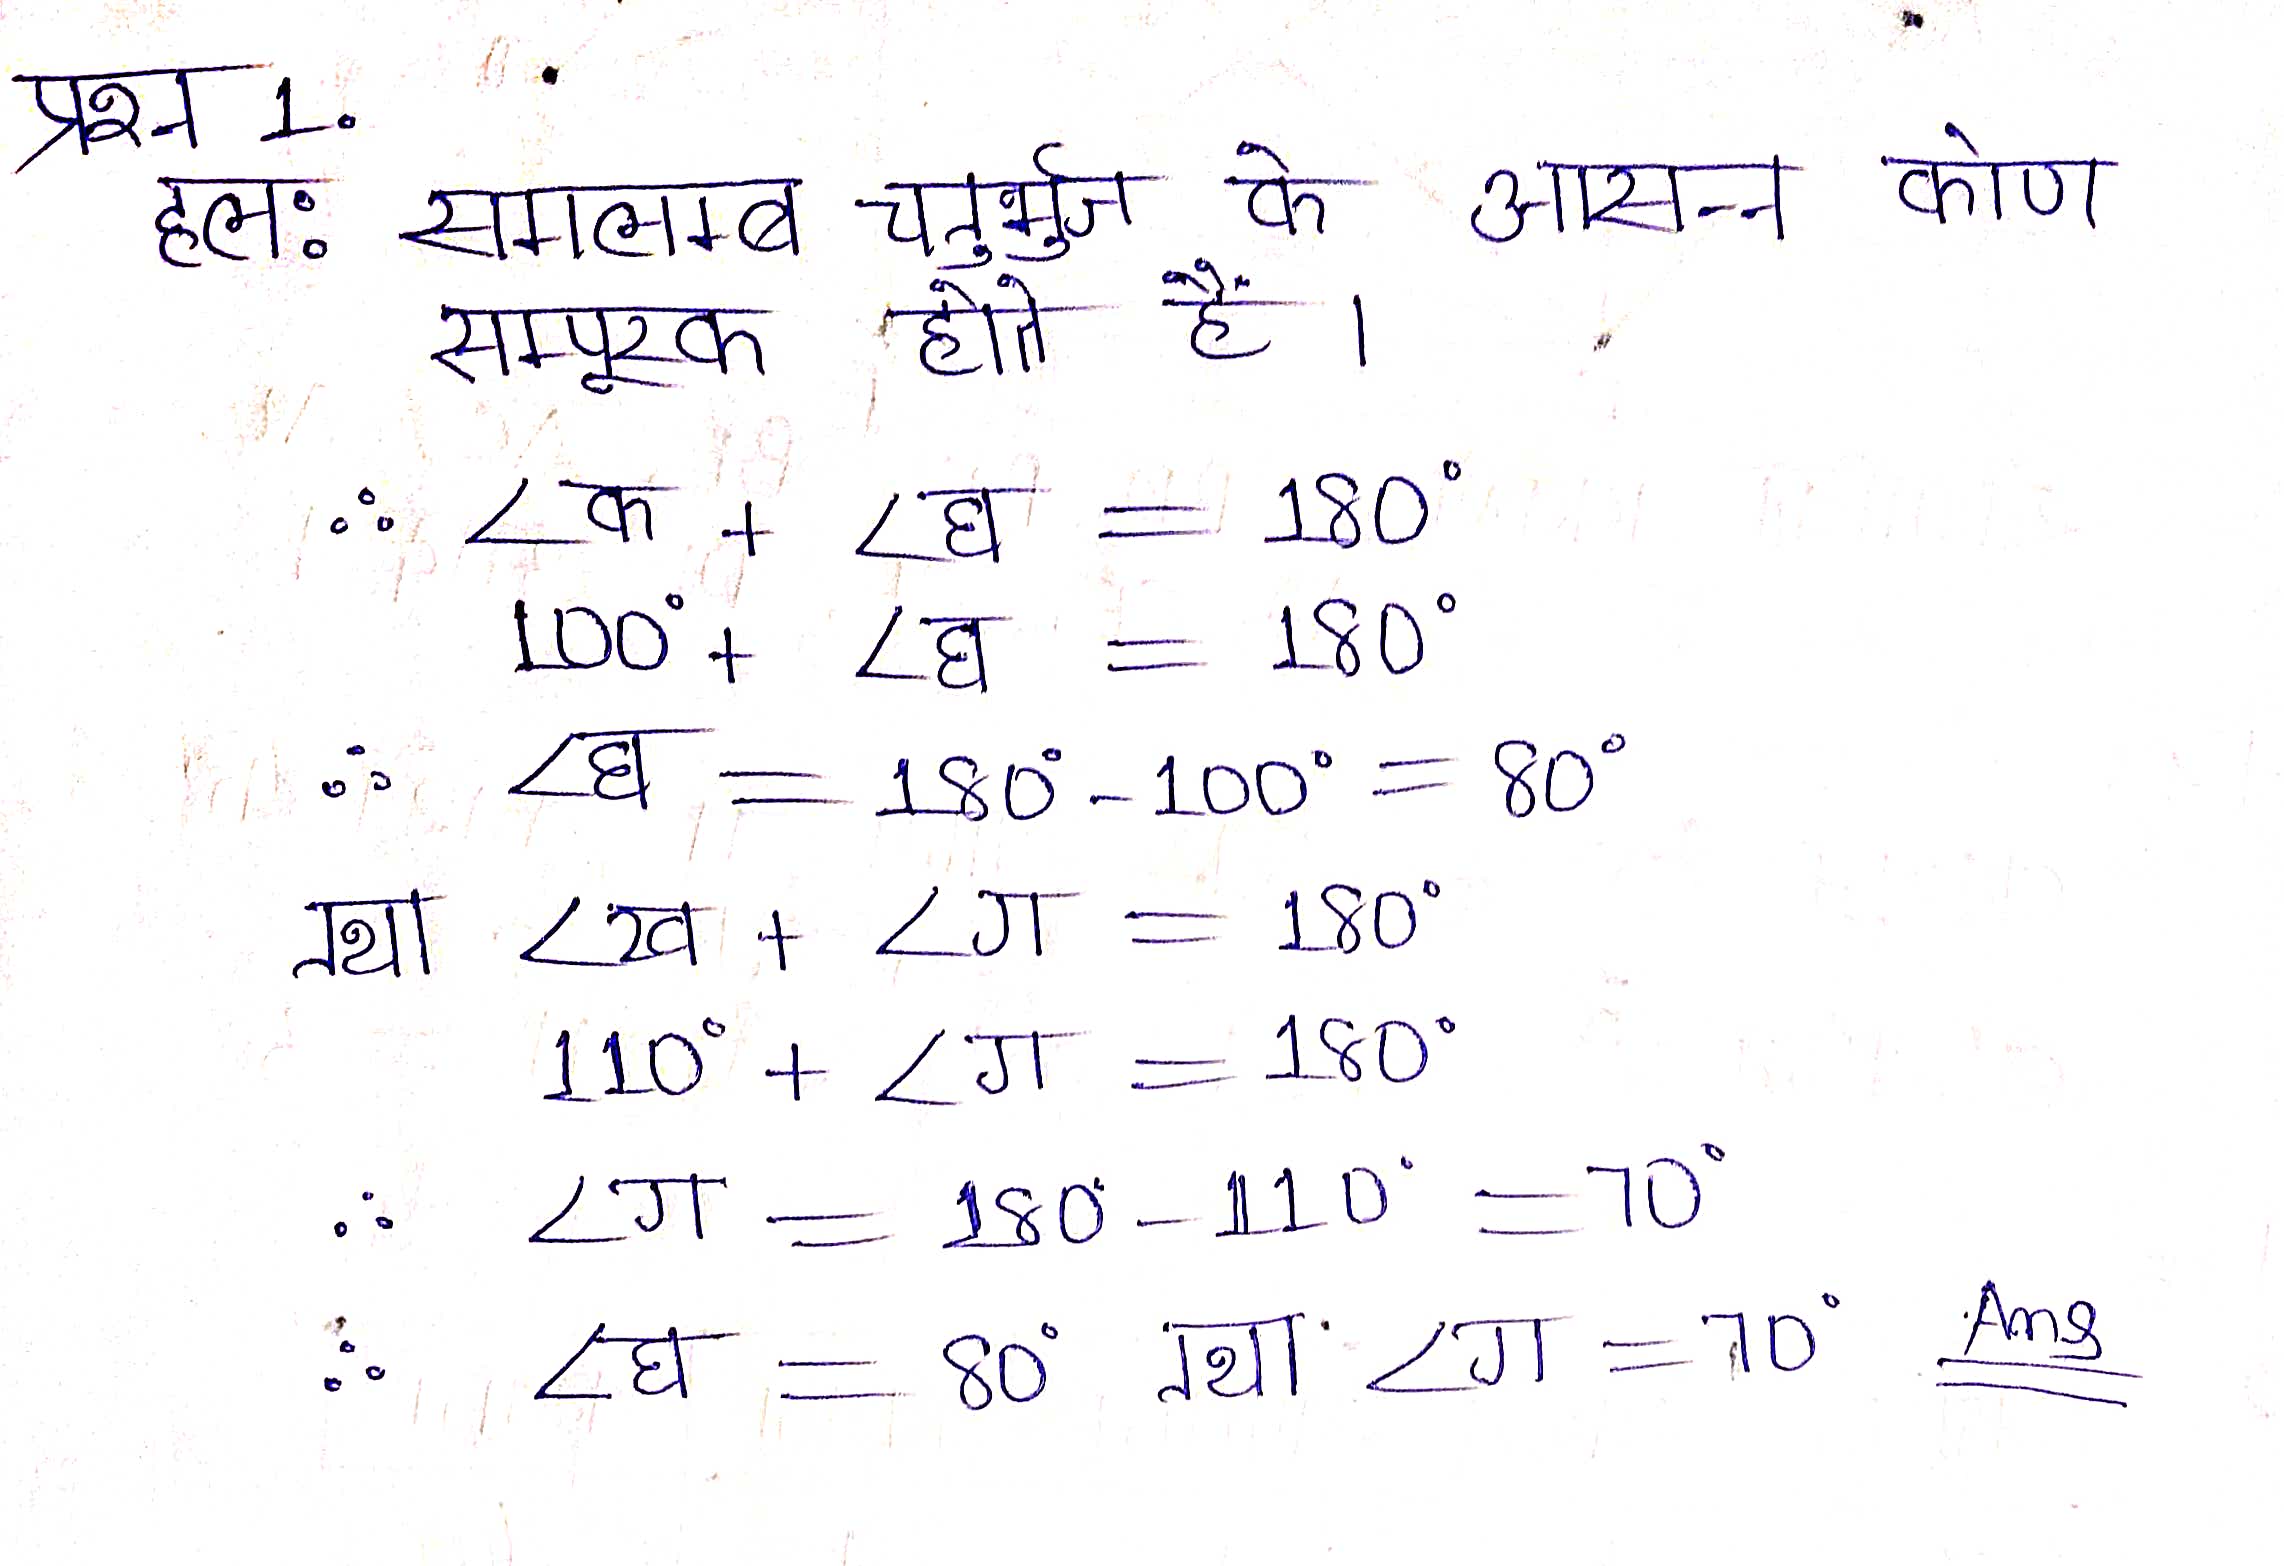 प्रश्न 1.
हल: समलम्ब चतुर्भुज के आसन्न कोण
सम्पूरक होते हैं।
∴ ∠क + ∠घ = 180°
100° + ∠घ = 180°
∴ ∠घ = 180° - 100° = 80°
तथा ∠ख + ∠ग = 180°
110° + ∠ग = 180°
∴ ∠ग = 180° - 110° = 70°
∴ ∠घ = 80° तथा ∠ग = 70° Ans